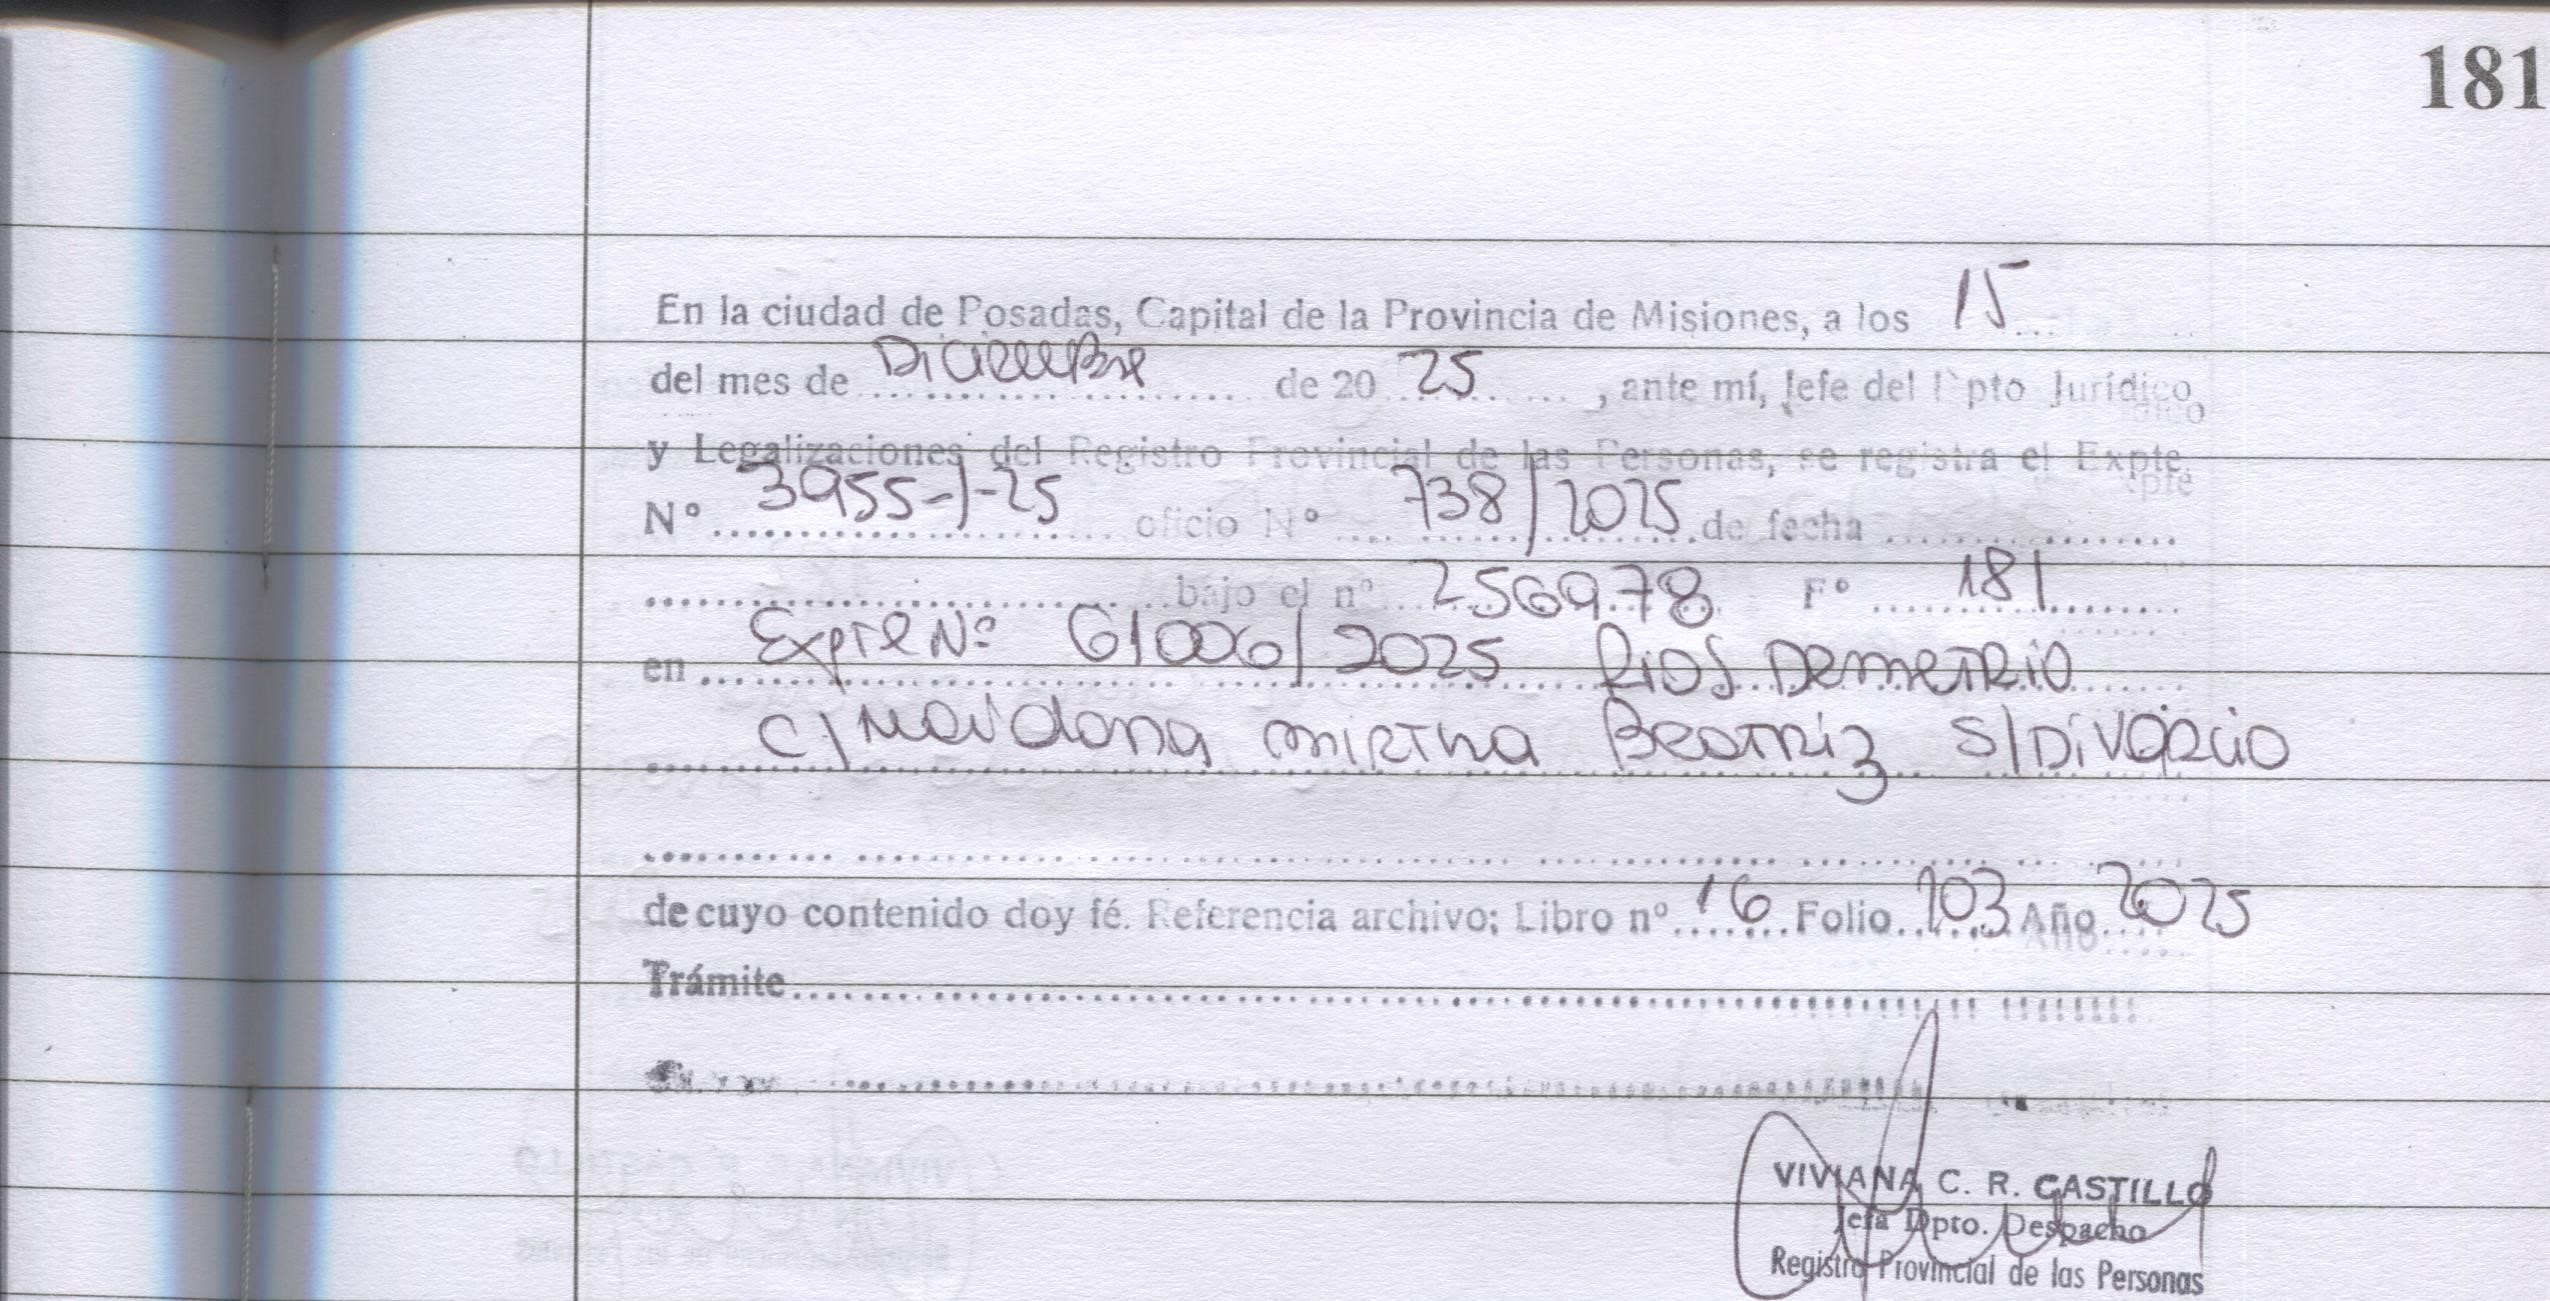 181
En la ciudad de Posadas, Capital de la Provincia de Misiones, a los 15
del mes de Diciembre de 20 25, ante mí, Jefe del Dpto Jurídico
y Legalizaciones del Registro Provincial de las Personas, se registra el Expte.
Nº 3955-J-25 oficio Nº 738/2025 de fecha
bajo el nº 256978 Fº 181
en Expte Nº 61006/2025 Rios Demetrio
C/ Maidana Mirtha Beatriz S/Divorcio
de cuyo contenido doy fé. Referencia archivo; Libro nº 16 Folio 103 Año 2025
Trámite
VIVIANA C. R. CASTILLO
Jefa Dpto. Despacho
Registro Provincial de las Personas